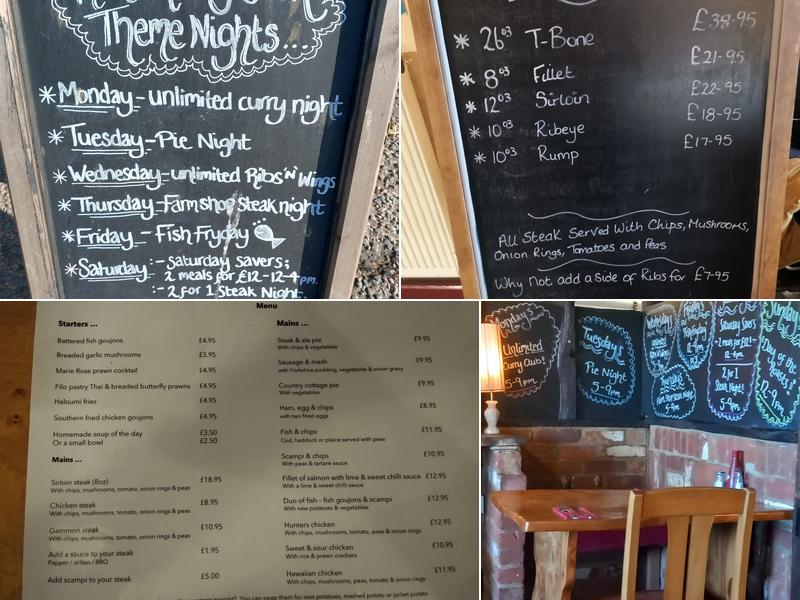 Theme Nights...
* Monday - unlimited curry night
* Tuesday - Pie Night
* Wednesday - unlimited Ribs 'N' Wings
* Thursday - Farm shop Steak night
* Friday - Fish Fryday
* Saturday :- Saturday Savers;
2 meals for £12-12-4pm.
:- 2 for 1 Steak Night.
£38-95
* 26oz T-Bone
£21-95
* 8oz Fillet
£22-95
* 12oz Sirloin
£18-95
* 10oz Ribeye
£17-95
* 10oz Rump
All Steak Served With Chips, Mushrooms,
Onion Rings, Tomatoes and Peas
Why not add a Side of Ribs for £7-95
Menu
Starters ...
Battered fish goujons £4.95
Breaded garlic mushrooms £3.95
Marie Rose prawn cocktail £4.95
Filo pastry Thai & breaded butterfly prawns £4.95
Haloumi fries £4.95
Southern fried chicken goujons £4.95
Homemade soup of the day £3.50
Or a small bowl £2.50
Mains ...
Sirloin steak (8oz) £18.95
With chips, mushrooms, tomato, onion rings & peas
Chicken steak £8.95
With chips, mushrooms, tomato, onion rings & peas
Gammon steak £10.95
With chips, mushrooms, tomato, onion rings & peas
Add a sauce to your steak £1.95
Pepper / stilton / BBQ
Add scampi to your steak £5.00
Mains ...
Steak & ale pie £9.95
With chips & vegetables
Sausage & mash £9.95
with Yorkshire pudding, vegetables & onion gravy
Country cottage pie £9.95
With vegetables
Ham, egg & chips £8.95
with two fried eggs
Fish & chips £11.95
Cod, haddock or plaice served with peas
Scampi & chips £10.95
With peas & tartare sauce
Fillet of salmon with lime & sweet chilli sauce £12.95
With a lime & sweet chilli sauce
Duo of fish – fish goujons & scampi £12.95
With new potatoes & vegetables
Hunters chicken £12.95
With chips, mushrooms, tomato, peas & onion rings
Sweet & sour chicken £10.95
With rice & prawn crackers
Hawaiian chicken £11.95
With chips, mushrooms, peas, tomato & onion rings
tonight? You can swap them for new potatoes, mashed potato or jacket potato
Monday's
Unlimited
Curry Club!
5-9pm.
Tuesday's
Pie Night
5-9pm
Saturday Savers
2 meals for £12
12-4pm
2 for 1
Steak Night!
5-9pm
Sunday
Day of the
Roasts!
12-9pm